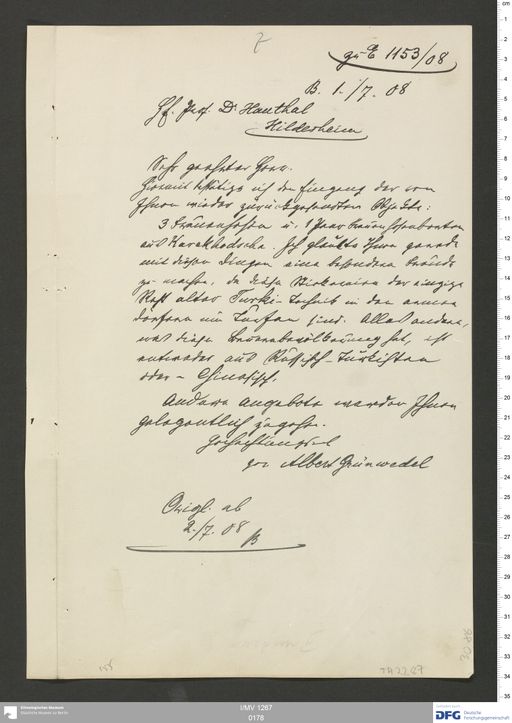 zu E 1153/08
B. 1./7. 08
H. Prof. Dr. Hauthal
Hildesheim
Sehr geehrter Herr.
Hiermit bestätige ich den Eingang der von
Ihnen wieder zurückgesandten Objekte:
3 Frauenhosen u. 1 Paar Frauenhosenborten
aus Karakhodscha. Ich glaubte Ihnen gerade
mit diesen Dingen eine besondere Freude
zu machen, da diese Stickereien der einzige
Rest alter Türki-Technik in den armen
Dörfern um Turfan sind. Alles andere,
was diese Bauernbevölkerung hat, ist
entweder aus Russisch-Turkistan
oder – Chinesisch.
Andere Angebote werden Ihnen
gelegentlich zugehen.
Hochachtungsvoll
gez. Albert Grünwedel
Origl. ab
2./7. 08
IB 
Ethnologisches Museum
Staatliche Museen zu Berlin
I/MV 1267
0178
DFG Deutsche
Forschungsgemeinschaft